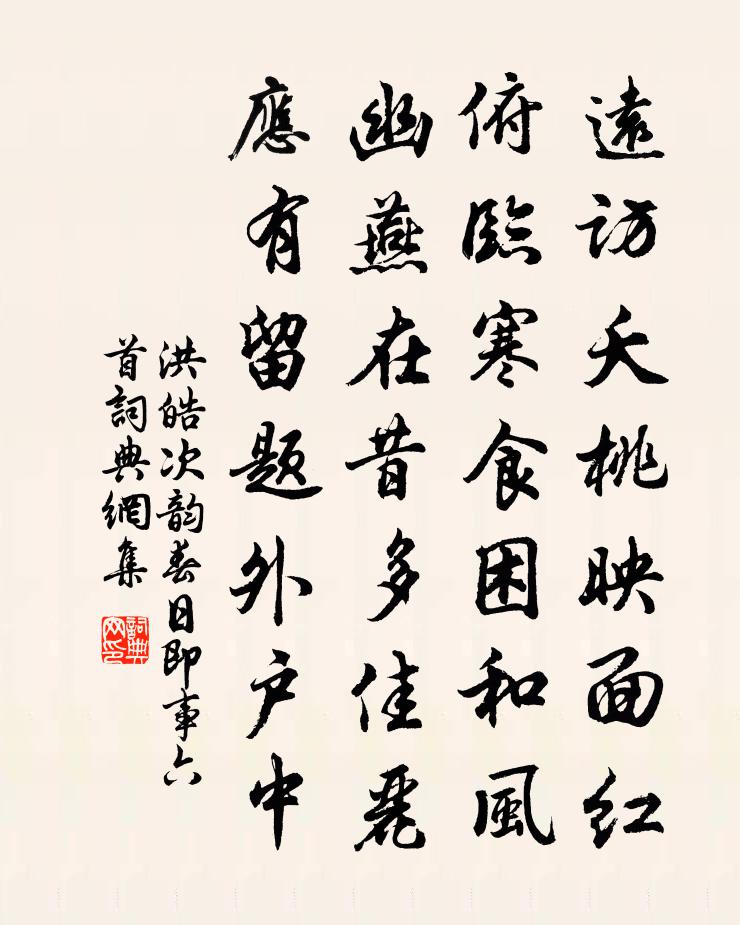 遠訪夭桃映面紅
俯臨寒食困和風
幽燕在昔多佳麗
應有留題外户中
洪皓次韵春日即事六
首詞典網集
詞典网印